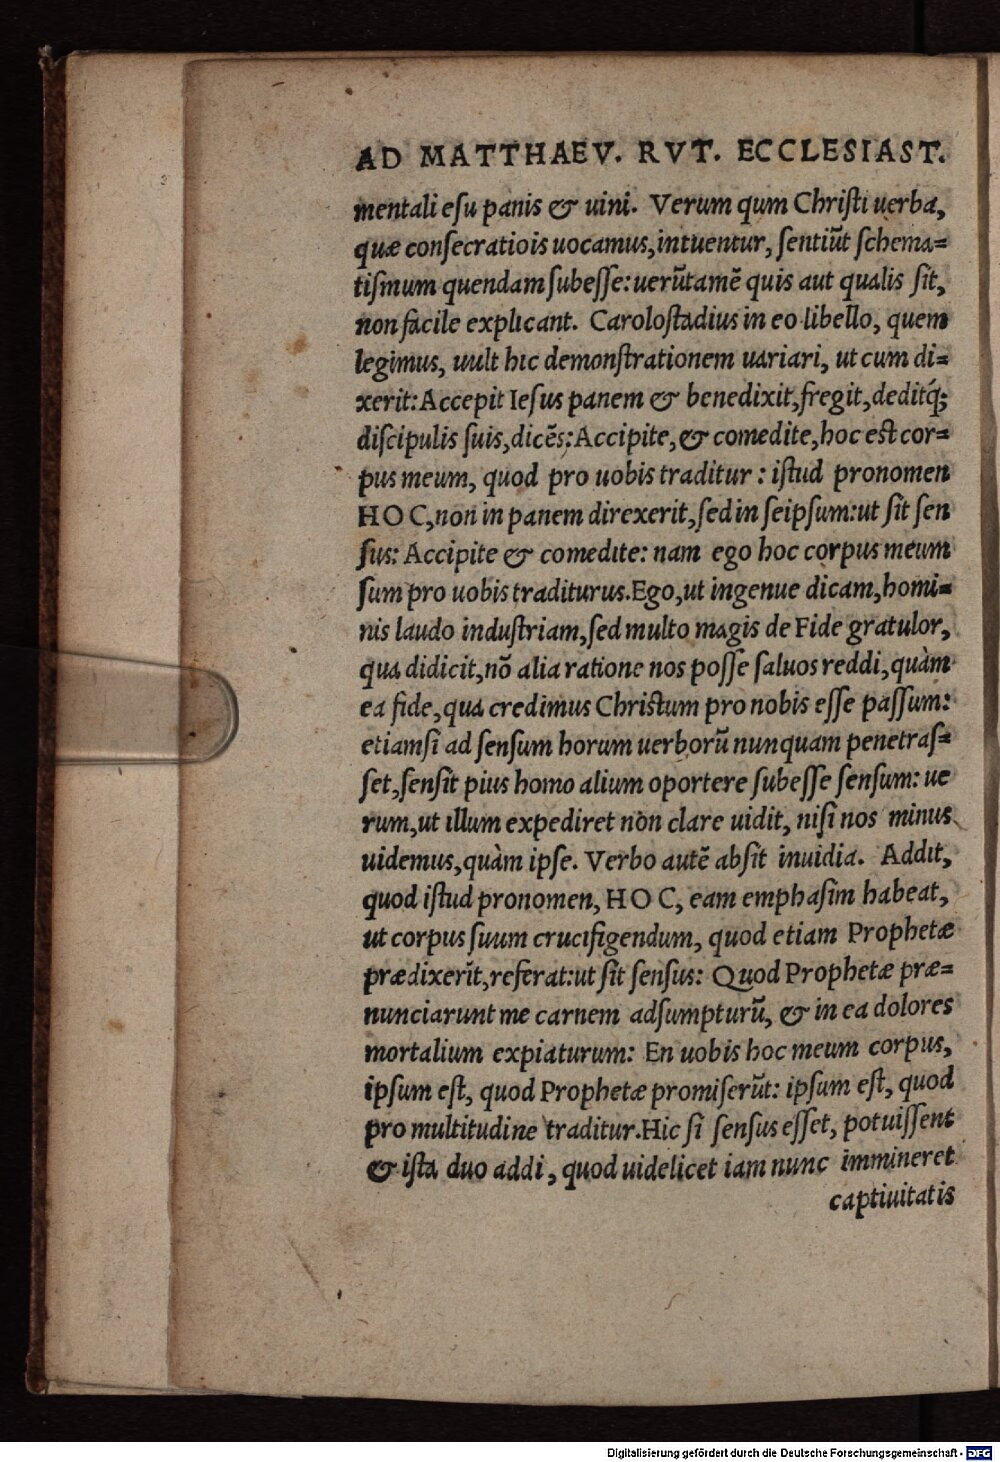 AD MATTHAEV. RVT. ECCLESIAST.
mentali esu panis & uini. Verum qum Christi uerba,
quæ consecratiois uocamus, intuentur, sentiũt schema=
tismum quendam subesse: uerũtamẽ quis aut qualis sit,
non facile explicant. Carolostadius in eo libello, quem
legimus, uult hic demonstrationem uariari, ut cum di=
xerit: Accepit Iesus panem & benedixit, fregit, deditq́;
discipulis suis, dicẽs: Accipite, & comedite, hoc est cor=
pus meum, quod pro uobis traditur : istud pronomen
HOC, non in panem direxerit, sed in seipsum: ut sit sen
sus: Accipite & comedite: nam ego hoc corpus meum
sum pro uobis traditurus. Ego, ut ingenue dicam, homi=
nis laudo industriam, sed multo magis de Fide gratulor,
qua didicit, nõ alia ratione nos posse saluos reddi, quàm
ea fide, qua credimus Christum pro nobis esse passum:
etiamsi ad sensum horum uerborũ nunquam penetras=
set, sensit pius homo alium oportere subesse sensum: ue
rum, ut illum expediret non clare uidit, nisi nos minus
uidemus, quàm ipse. Verbo autẽ absit inuidia. Addit,
quod istud pronomen, HOC, eam emphasim habeat,
ut corpus suum crucifigendum, quod etiam Prophetæ
prædixerĩt, referat: ut sit sensus: Quod Prophetæ præ=
nunciarunt me carnem adsumpturũ, & in ea dolores
mortalium expiaturum: En uobis hoc meum corpus,
ipsum est, quod Prophetæ promiserũt: ipsum est, quod
pro multitudine traditur. Hic si sensus esset, potuissent
& ista duo addi, quod uidelicet iam nunc immineret
captiuitatis
Digitalisierung gefördert durch die Deutsche Forschungsgemeinschaft - DFG